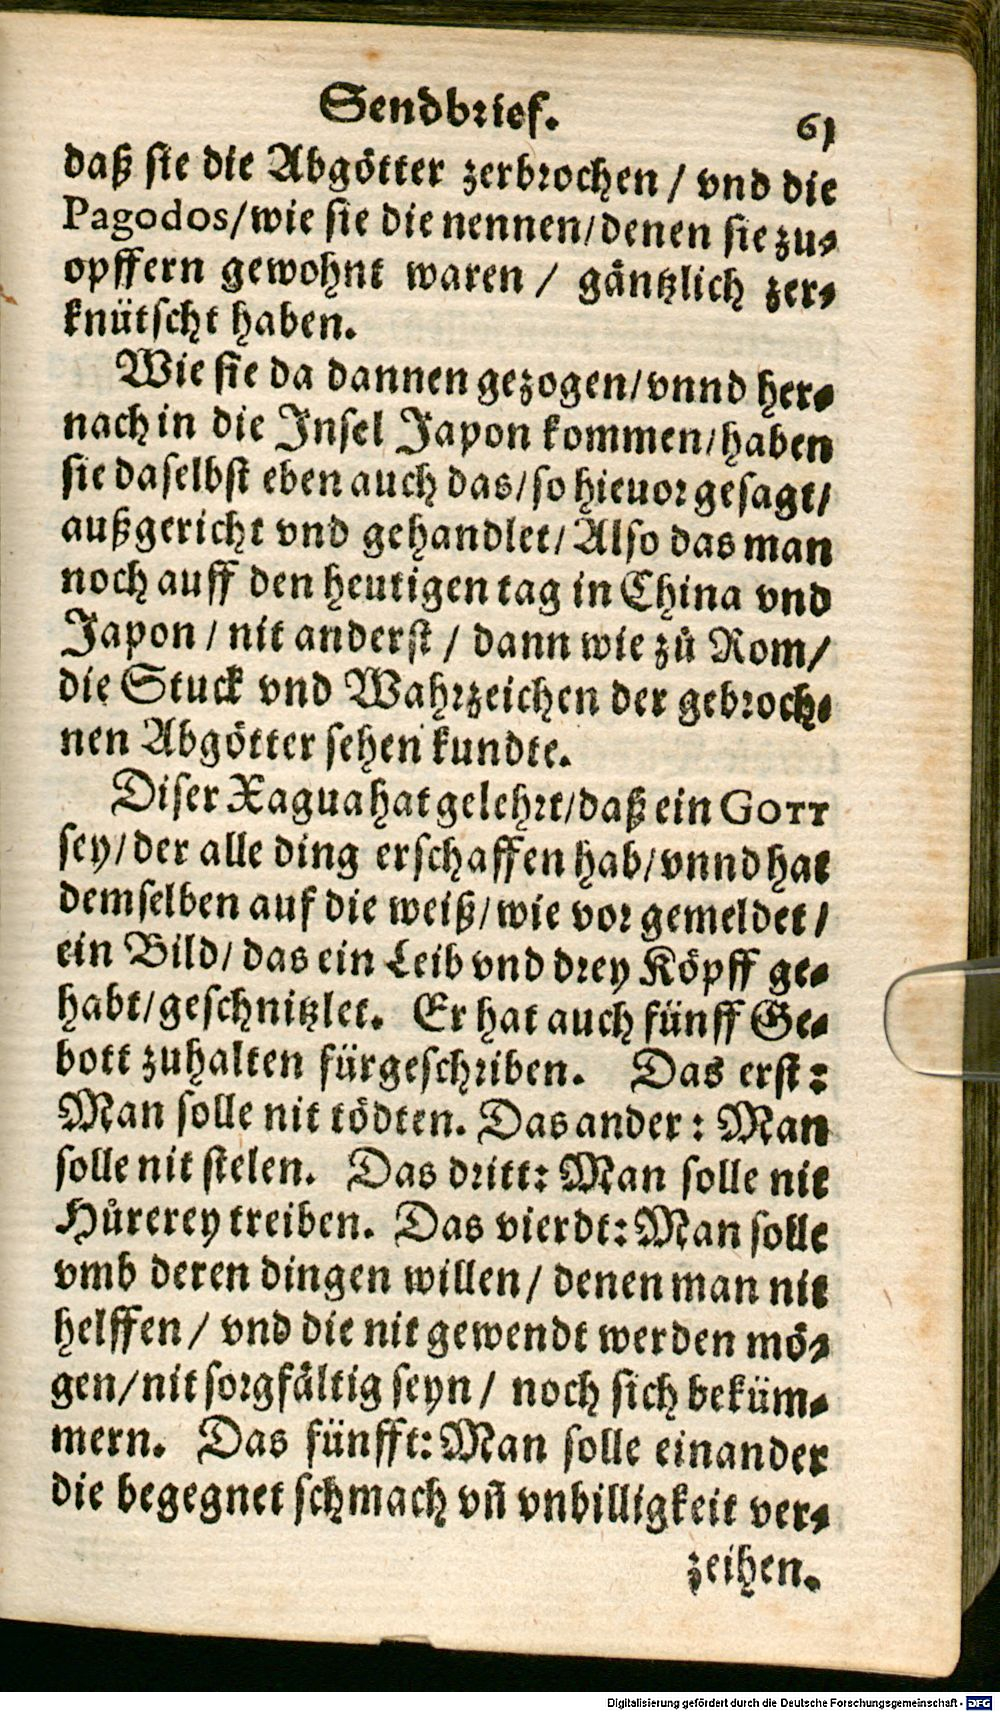 Sendbrief. 61
daß sie die Abgötter zerbrochen / vnd die
Pagodos/wie sie die nennen/denen sie zu-
opffern gewohnt waren / gäntzlich zer-
knütscht haben.
Wie sie da dannen gezogen/vnnd her-
nach in die Insel Japon kommen/haben
sie daselbst eben auch das/so hieuor gesagt/
außgericht vnd gehandlet/Also das man
noch auff den heutigen tag in China vnd
Japon / nit anderst / dann wie zů Rom/
die Stuck vnd Wahrzeichen der gebroch-
nen Abgötter sehen kundte.
Diser Xagua hat gelehrt/daß ein GOTT
sey/der alle ding erschaffen hab/vnnd hat
demselben auf die weiß/wie vor gemeldet/
ein Bild/das ein Leib vnd drey Köpff ge-
habt/geschnitzlet. Er hat auch fünff Ge-
bott zuhalten fürgeschriben. Das erst:
Man solle nit tödten. Das ander: Man
solle nit stelen. Das dritt: Man solle nit
Hůrerey treiben. Das vierdt: Man solle
vmb deren dingen willen/ denen man nit
helffen/ vnd die nit gewendt werden mö-
gen/nit sorgfältig seyn/ noch sich beküm-
mern. Das fünfft: Man solle einander
die begegnet schmach vñ vnbilligkeit ver-
zeihen.
Digitalisierung gefördert durch die Deutsche Forschungsgemeinschaft - DFG